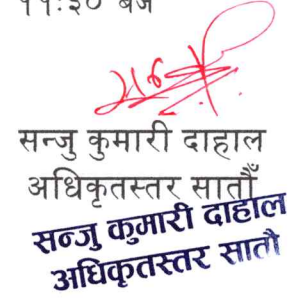 ११:३० बजे
सन्जु कुमारी दाहाल
अधिकृतस्तर सातौँ
सन्जु कुमारी दाहाल
अधिकृतस्तर सातौ